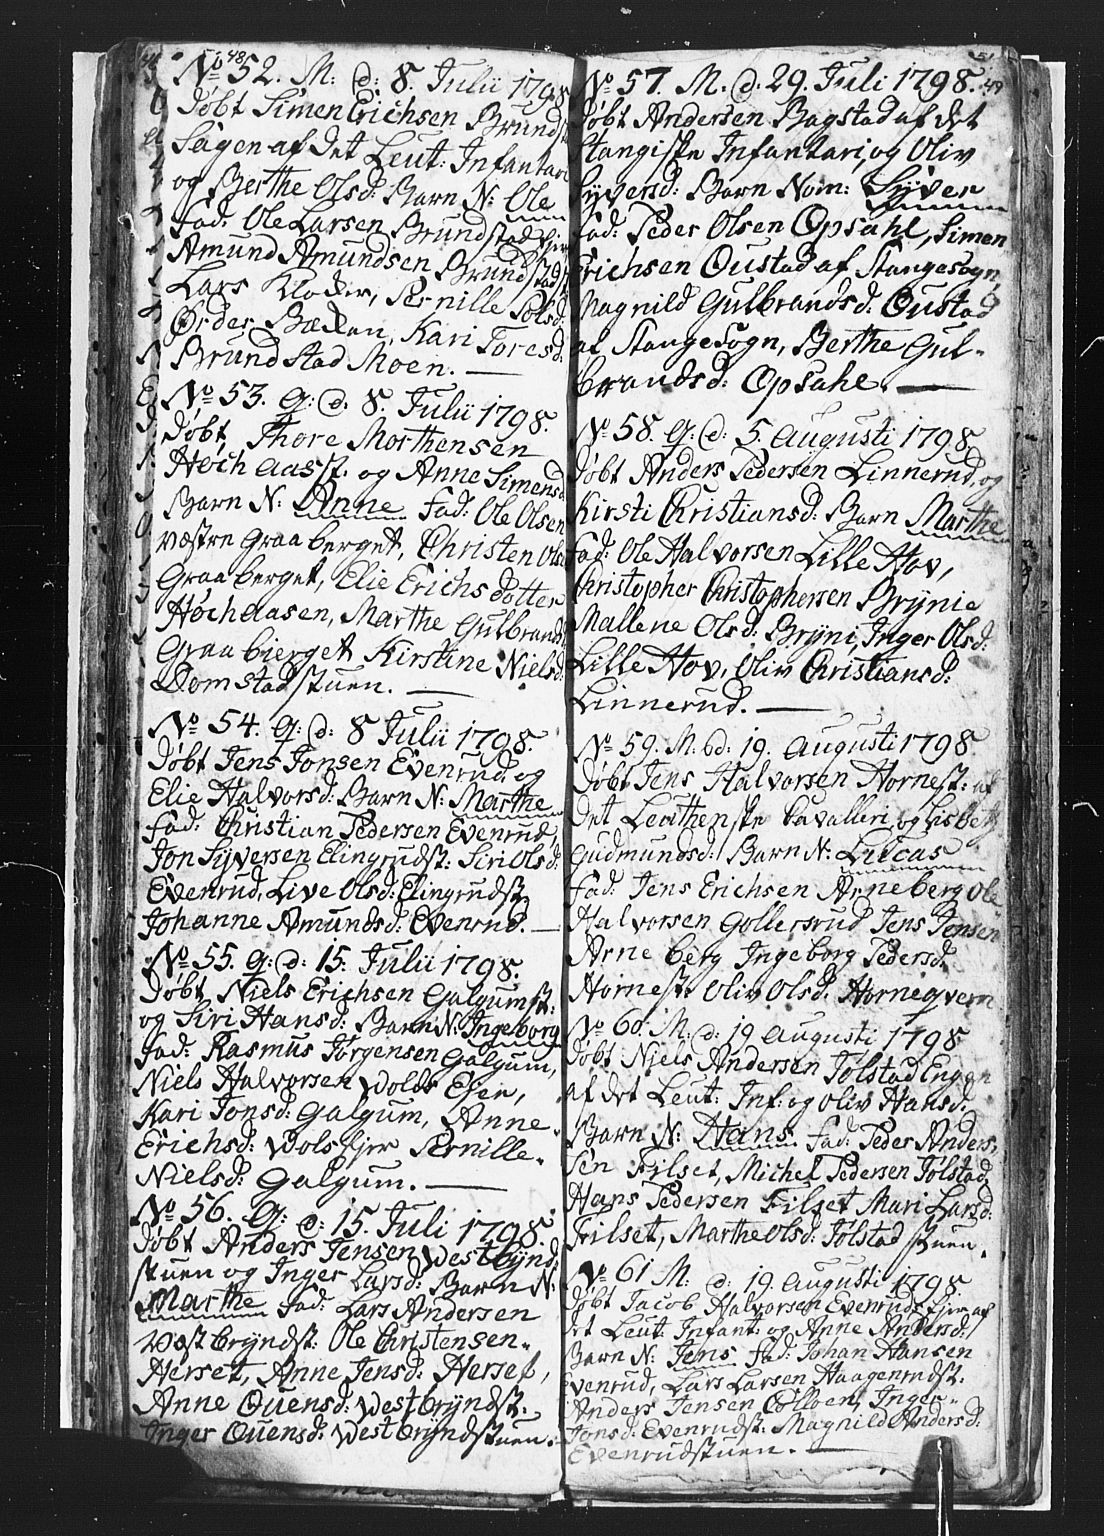 48
No 52. M: d: 8. Julii 1798
Døbt Simen Erichsen Brundst
Sagen af det Leut: Infantari
og Berthe Olsd: Barn N: Ole
Fad: Ole Larsen Brundstad Ejer
Amund Amundsen Brundstad
Lars Kloder, Pernille Polsd:
Øvder Bækken, Kari Toresd:
Brundstad Moen. —
No 53. G: d: 8. Julii 1798.
Døbt, Thore Morthensen
Høch aasst. og Anne Simensd
Barn N: Anne Fad: Ole Olsen
væstre Graaberget, Christen Olse
Graaberget, Elie Erichsdotter
Høchaasen, Marthe Gulbrands
Graabierget Kirstine Nielsd:
Domstadstuen. —
No 54. G: d: 8 Julii 1798.
Døbt Jens Jonsen Evenrud og
Elie Halvorsd: Barn N: Marthe
Fad: Christian Pedersen Evenrud,
Jon Syversen Elingrudst: Siri Olsd:
Evenrud, Live Olsd: Elingrudst
Johanne Amundsd: Evenrud. —
No 55. G: d: 15. Julii 1798.
Døbt Niels Erichsen Galgumst:
og Siri Hansd: Barn N: Ingeborg
Fad: Rasmus Jørgensen Galgum,
Niels Halvorsen Wolds Ejer,
Kari Jonsd: Galgum, Anne
Erichsd: Wols Ejer Pernille
Nielsd: Galgum. —
No 56. G: d: 15. Juli 1798.
Døbt Anders Jensen Westbynd
stuen og Inger Larsd: Barn N:
Marthe Fad: Lars Andersen
Væstbryndst: Ole Christensen
Herset, Anne Jensd: Herset,
Anne Ouensd: Westbryndst.
Inger Ouensd: Westbryndstuen.
49
No 57. M. d. 29. Juli 1798.
Døbt Andersen Bagstad af det
Stangiske Infantari, og Oliv
Syversd: Barn Nom: Syver
Fad: Peder Olsen Opsahl, Simen
Erichsen Oustad af Stangesogn,
Magnild Gulbrandsd: Oustad
af Stangesogn, Berthe Gul-
brandsd: Opsahl. —
No 58. G: d: 5. Augusti 1798
Døbt Anders Pedersen Linnerud, og
Kirsti Christiansd: Barn Marthe
Fad: Ole Halvorsen Lille Hov,
Christopher Christophersen Brynie
Mallene Olsd: Bryni, Inger Olsd:
Lille Hov, Oliv Christiansd:
Linnerud. —
No 59. M: d: 19. Augusti 1798
Døbt Jens Halvorsen Hornest: af
det Leuthenske Cavalleri, og Lisbeth
Gudmundsd: Barn N: Lucas
Fad: Jens Erichsen Arneberg Ole
Halvorsen Gollersrud Jens Jensen
Arneberg Ingeborg Pedersd:
Hornest: Oliv Olsd: Horneqvern
No 60. M: d: 19 Augusti 1798
Døbt Niels Andersen Tølstad Engen
af det Leut: Inf: og Oliv Hansd:
Barn N: Hans Fad: Peder Anders
sen Filset, Michel Pedersen Tølstad
Hans Pedersen Filset Mari Larsd:
Filset, Marthe Olsd: Tølstad stuen.
No 61 M: d: 19. Augusti 1798.
Døbt Jacob Halvorsen Evenruds Ejer af
det Leut: Infant: og Anne Andersd:
Barn N: Jens Fad: Johan Hansen
Evenrud, Lars Larsen Haagenrudst.
Anders Jensen Colloen, Inger
Jonsd: Evenrudst: Magnild Andersd:
Evenrudstuen. —